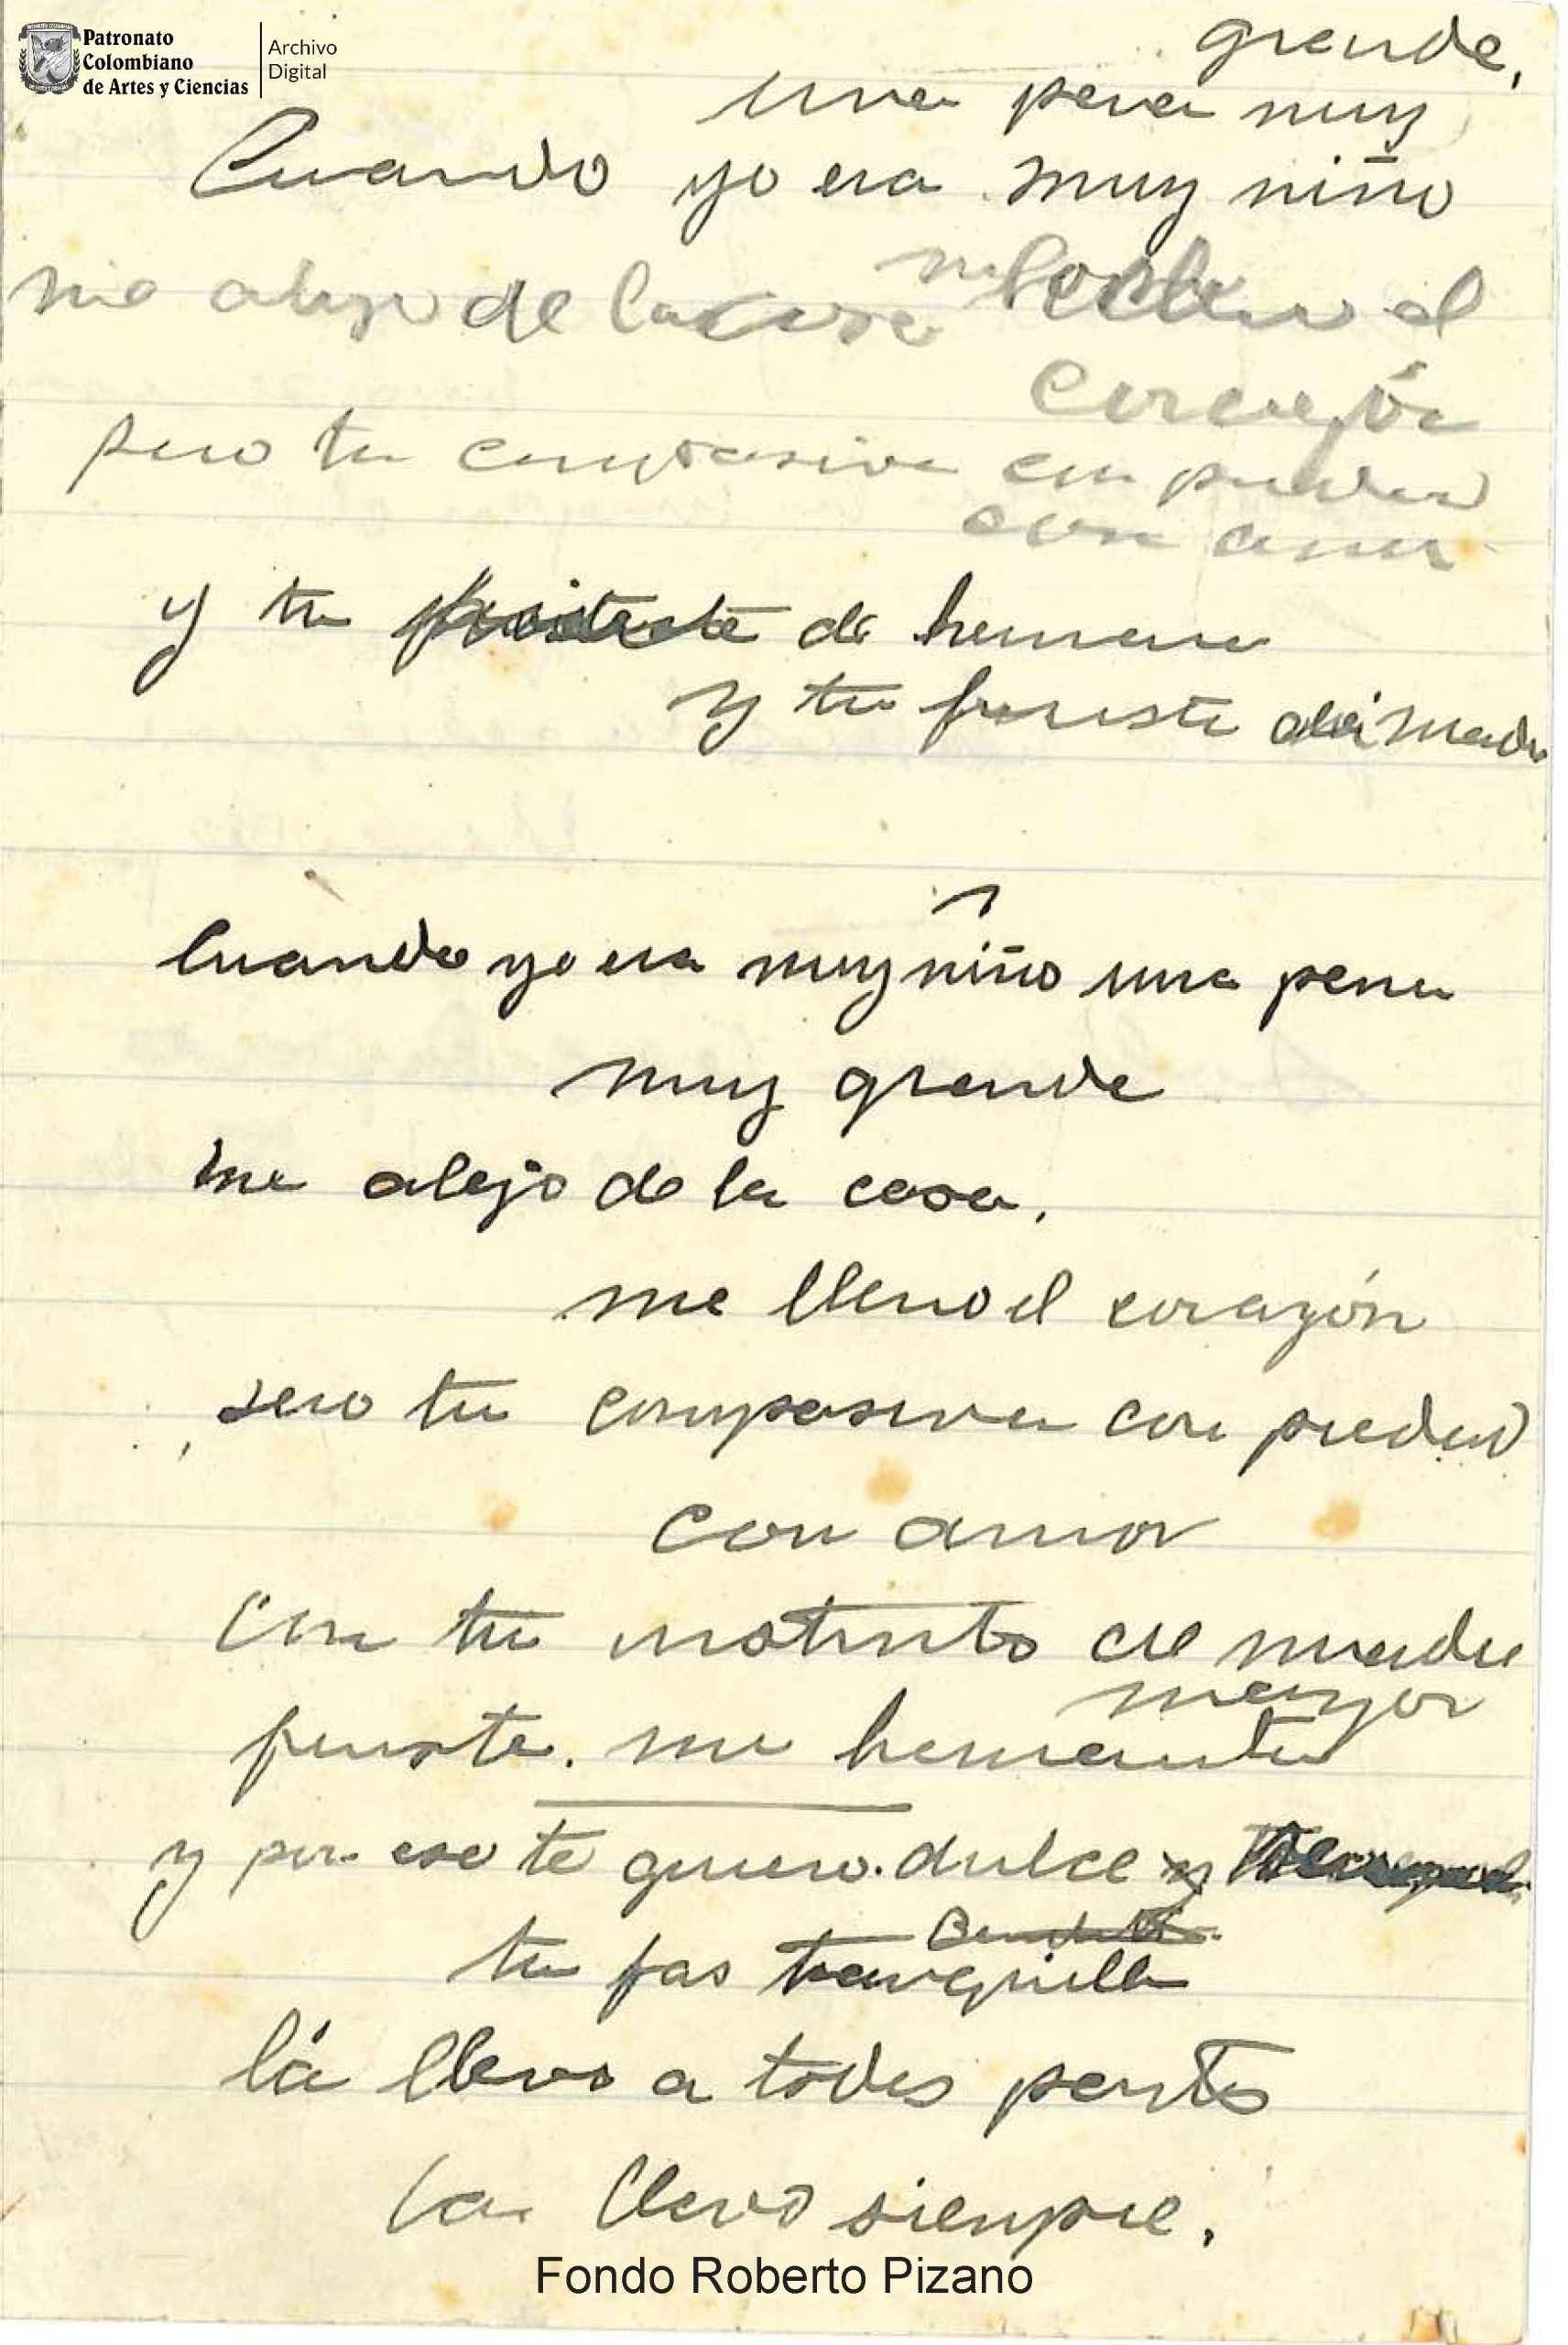 Patronato
Colombiano
de Artes y Ciencias
Archivo
Digital
grande,
una pena muy
Cuando yo era muy niño
me alejo de la casa me el
corazón
pero tu compasiva con piedad
con amor
y tu de hermana
y tu fuiste madre
Cuando yo era muy niño una pena
muy grande
me alejo de la casa,
me lleno el corazón
pero tu compasiva con piedad
con amor
Con tu instinto de madre
mayor
fuiste. mi hermanita
y por eso te quiero. dulce y
tu fas tranquilla
lá llevo a todos partes
La llevo siempre.
Fondo Roberto Pizano